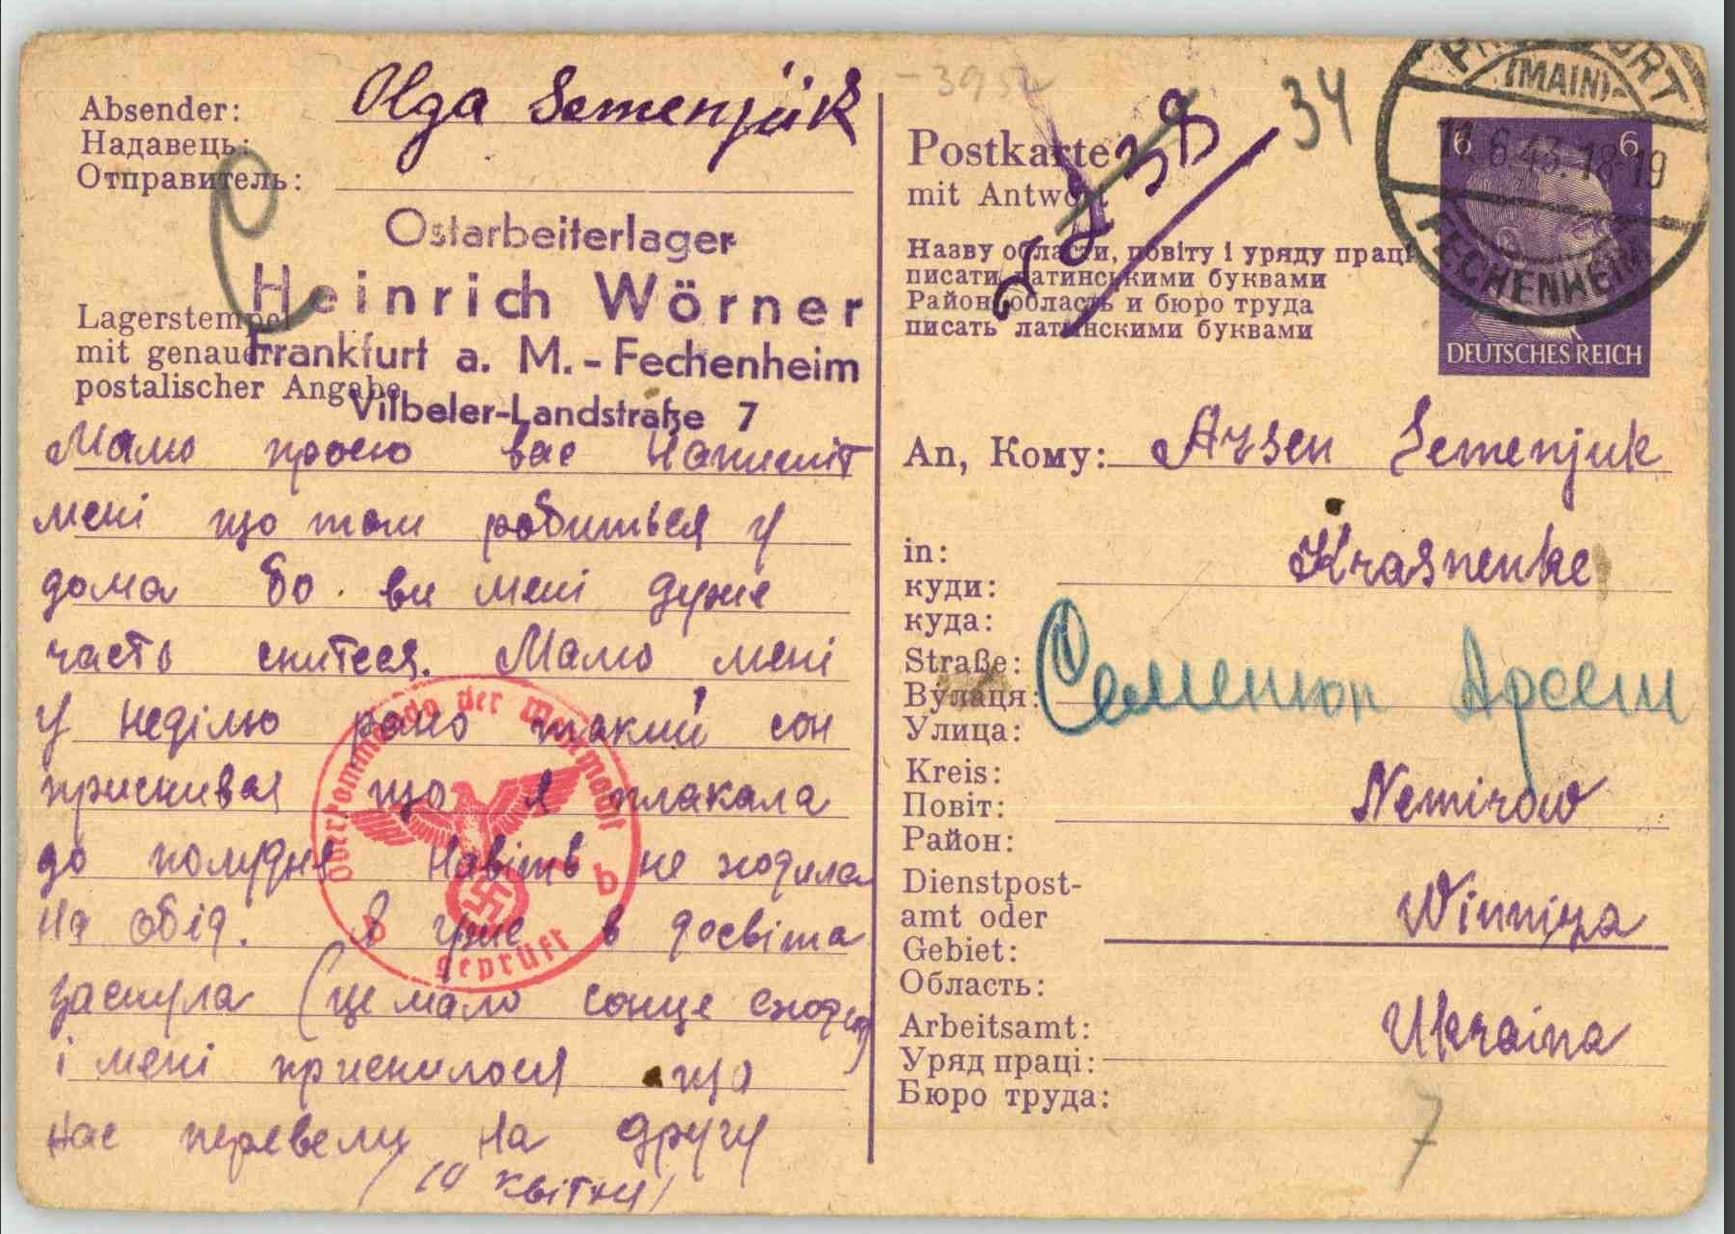 Absender:
Надавець:
Отправитель:
Olga Semenjuk
Ostarbeiterlager
Heinrich Wörner
Frankfurt a. M.-Fechenheim
Vilbeler-Landstraße 7
Lagerstempel
mit genauer
postalischer Angabe
Мамо прошу вас Напишіт
мені що там робиться у
дома бо ви мені дуже
часто снитеся. Мамо мені
у неділю рано такий сон
приснився що я плакала
до полудня Навіть не ходила
На обід. Я уже в досвіта
заснула (це мало сонце сходити)
і мені приснилося що
нас перевели на другу
(10 квітня)
Oberkommando der Wehrmacht
geprüft
b b
3952
34
38
Postkarte
mit Antwort
Назву области, повіту і уряду праці
писати латинськими буквами
Район, область и бюро труда
писать латинскими буквами
FRANKFURT
(MAIN)-
11.6.43.18-19
FECHENHEIM
6 6
DEUTSCHES REICH
An, Кому: Arsen Semenjuk
in:
куди:
куда:
Krasnenke
Straße:
Вулаця:
Улица:
Семенюк Арсен
Kreis:
Повіт:
Район:
Nemirow
Dienstpost-
amt oder
Gebiet:
Область:
Winniza
Arbeitsamt:
Уряд праці:
Бюро труда:
Ukraina
7